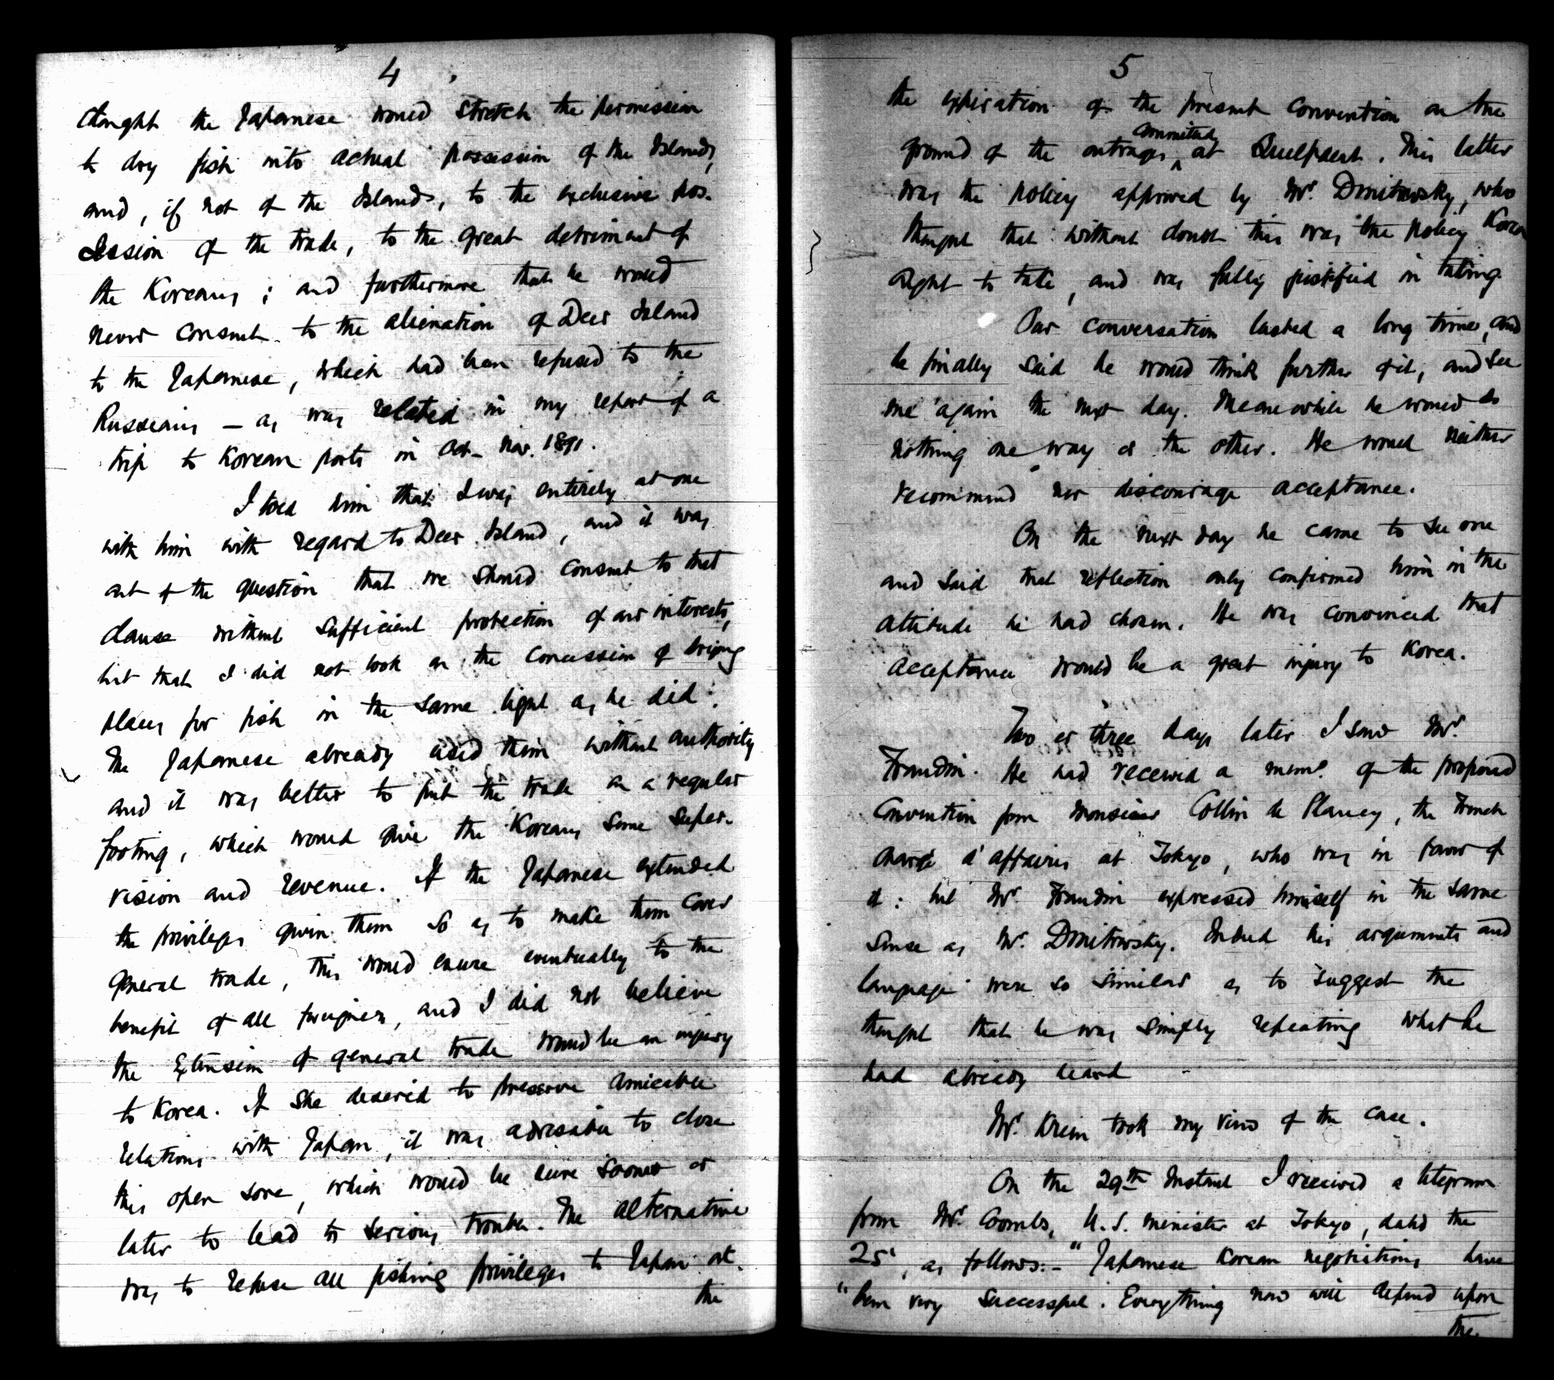 4
thought the Japanese would stretch the permission
to dry fish into actual possession of the Islands,
and, if not of the Islands, to the exclusive pos-
session of the trade, to the great detriment of
the Koreans; and furthermore that he would
never consent to the alienation of Deer Island
to the Japanese, which had been refused to the
Russians – as was related in my report of a
trip to Korean ports in Oct.- Nov. 1891.
I told him that I was entirely at one
with him with regard to Deer Island, and it was
out of the question that we should consent to that
clause without sufficient protection of our interests,
but that I did not look on the concession of drying
places for fish in the same light as he did.
The Japanese already used them without authority
and it was better to put the trade on a regular
footing, which would give the Koreans some super-
vision and revenue. If the Japanese extended
the privileges given them so as to make them cover
general trade, this would enure eventually to the
benefit of all foreigners, and I did not believe
the extension of general trade would be an injury
to Korea. If she desired to preserve amicable
relations with Japan, it was advisable to close
this open sore, which would be sure sooner or
later to lead to serious trouble. The alternative
was to refuse all fishing privileges to Japan at
the
5
the expiration of the present convention on the
ground of the outrages committed at Quelpaert. This latter
was the policy approved by Mr. Dmitrevsky, who
thought that without doubt this was the policy Korea
ought to take, and was fully justified in taking
Our conversation lasted a long time, and
he finally said he would think further of it, and see
me again the next day. Meanwhile he would do
nothing one way or the other. He would neither
recommend nor discourage acceptance.
On the next day he came to see me
and said that reflection only confirmed him in the
attitude he had chosen. He was convinced that
acceptance would be a great injury to Korea.
Two or three days later I saw Mr.
Frandin. He had received a memo. of the proposed
Convention from Monsieur Collin de Plancy, the French
chargé d'affaires at Tokyo, who was in favor of
it: but Mr. Frandin expressed himself in the same
sense as Mr. Dmitrevsky. Indeed his arguments and
language were so similar as to suggest the
thought that he was simply repeating what he
had already heard
Mr. Krien took my view of the case.
On the 29th Instant I received a telegram
from Mr. Coombs, U.S. Minister at Tokyo, dated the
25', as follows:- "Japanese Korean negotiations have
"been very successful. Everything now will depend upon
the